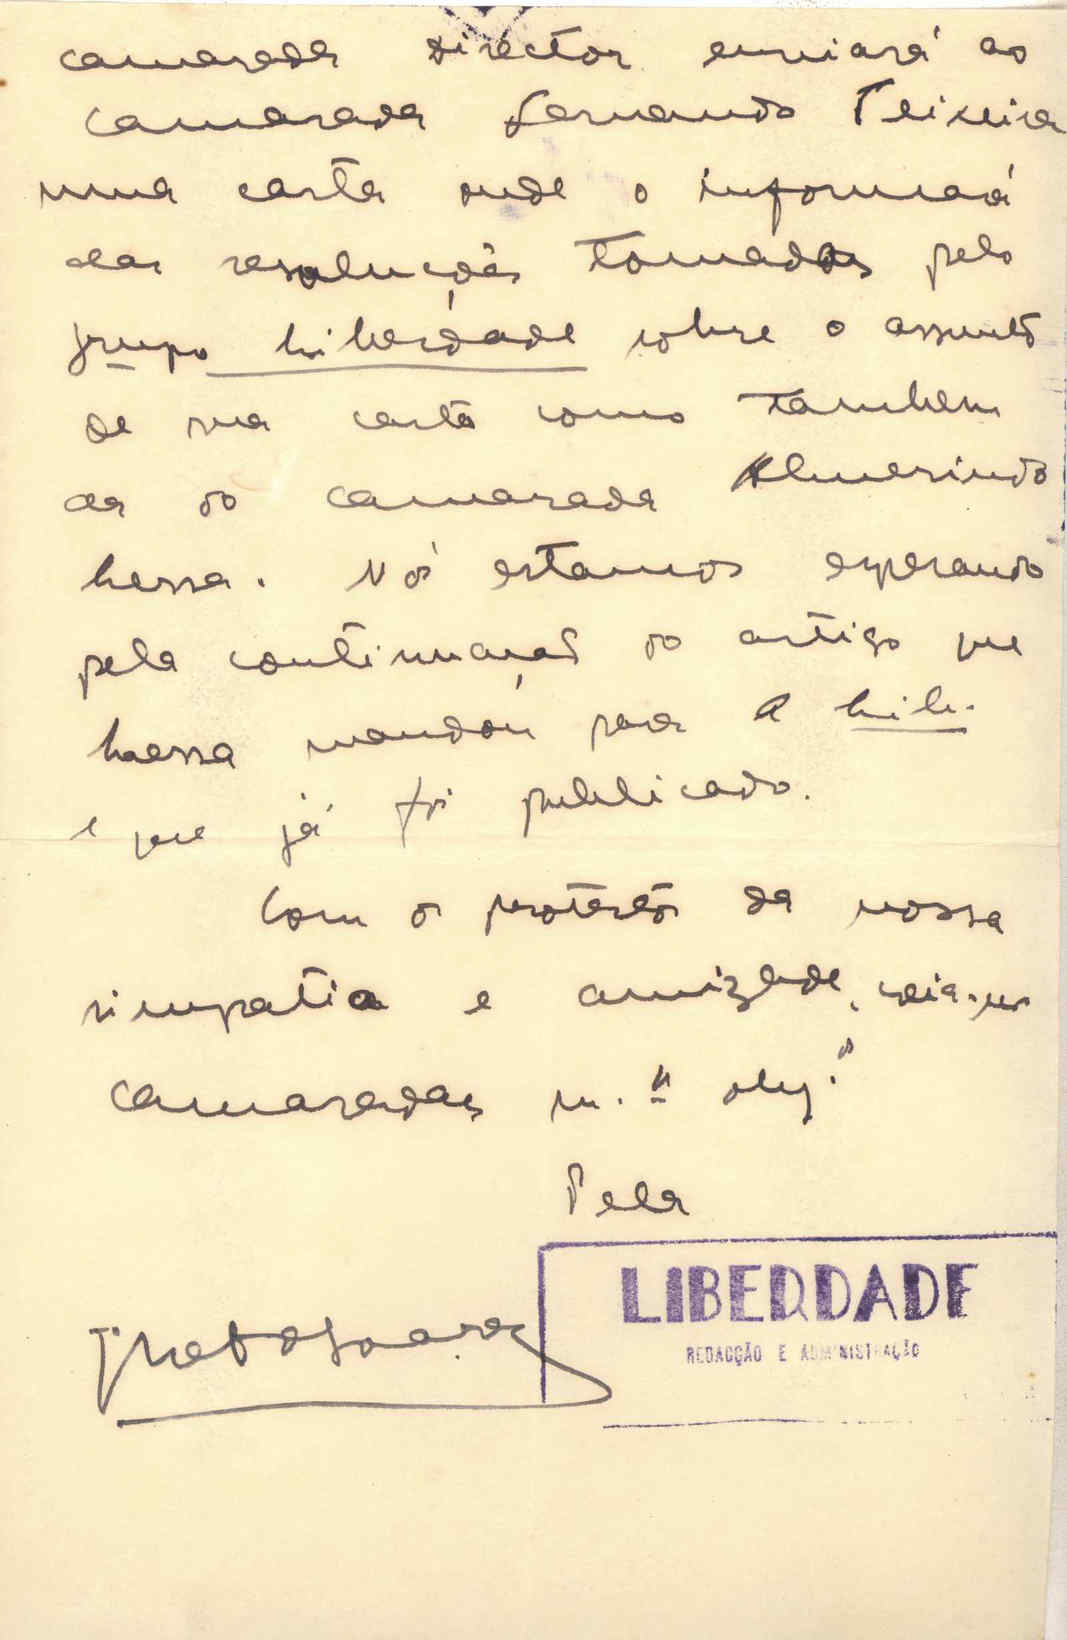 camarada director enviará ao
camarada Fernando Teixeira
uma carta onde o informará
das resoluções tomadas pelo
grupo Liberdade sobre o assunto
de sua carta como tambem
da do camarada Almerindo
Lessa. Nós estamos esperando
pela continuação do artigo que
Lessa mandou para A Lib.
e que já foi publicado.
Com os protestos da nossa
simpatia e amizade,
camaradas m.to obg.os
Pela
LIBERDADE
REDACÇÃO E ADMINISTRAÇÃO